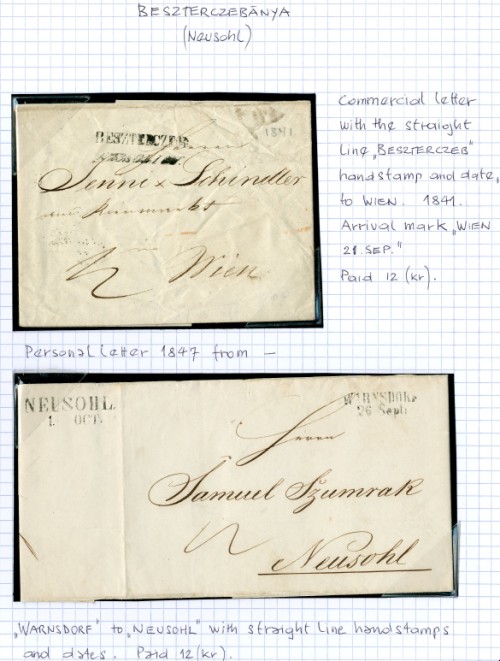 BESZTERCZEBÁNYA
(Neusohl)
Commercial letter
with the straight
line „BESZTERCZEB"
handstamp and date,
to WIEN. 1841.
Arrival mark „WIEN
21. SEP."
Paid 12 (kr).
BESZTERCZEB.
1841
Jenni & Schindler
Wien
Personal letter 1847 from —
NEUSOHL
1. OCT.
WARNSDORF
26 Sept:
Herrn
Samuel Szumrak
Neusohl
„WARNSDORF" to „NEUSOHL" with straight line handstamps
and dates. Paid 12 (kr).